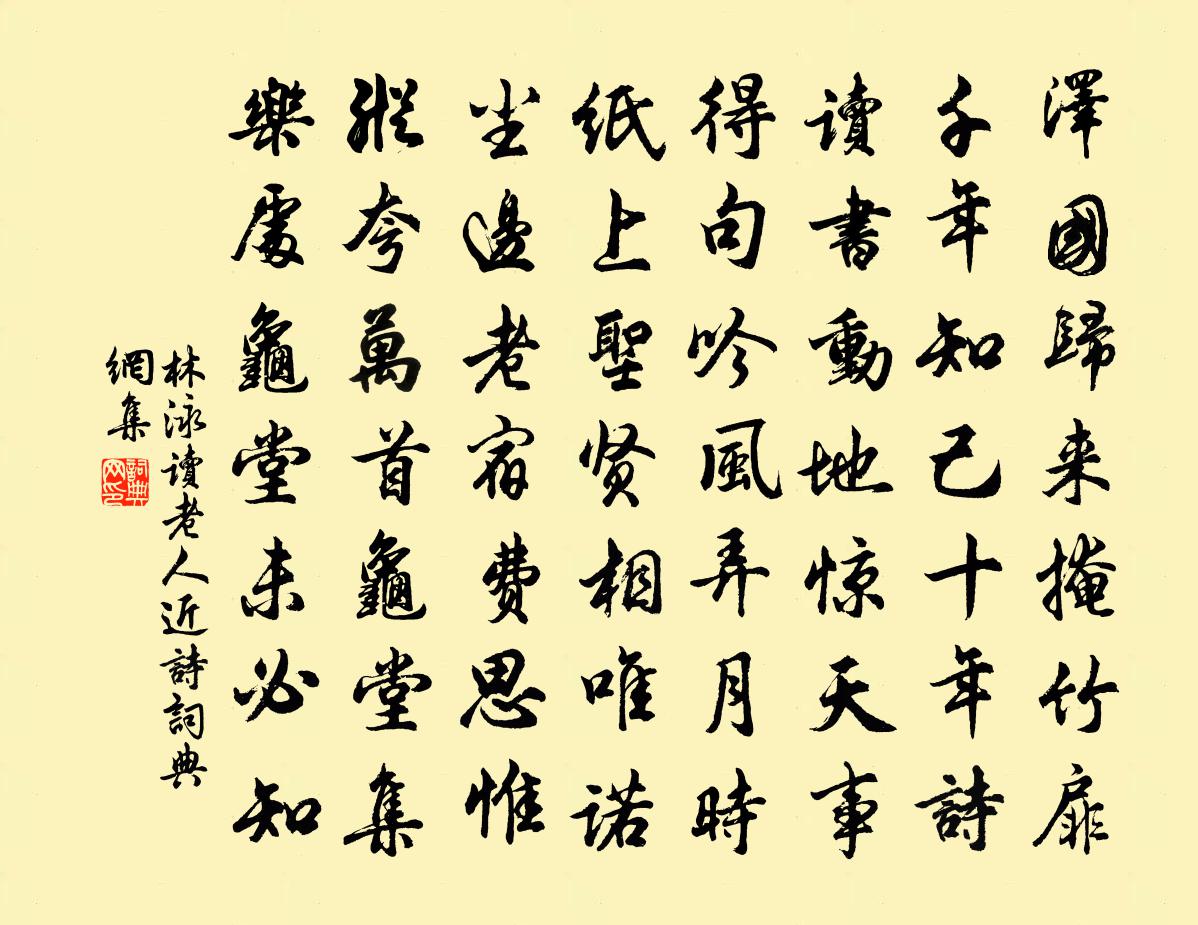 澤國歸来掩竹扉
千年知己十年詩
讀書動地惊天事
得句吟風弄月時
紙上聖贤相唯诺
坐邊老宿費思惟
縱夸萬首龜堂集
樂處龜堂未必知
林泳讀老人近詩詞典
網集
詞典网印